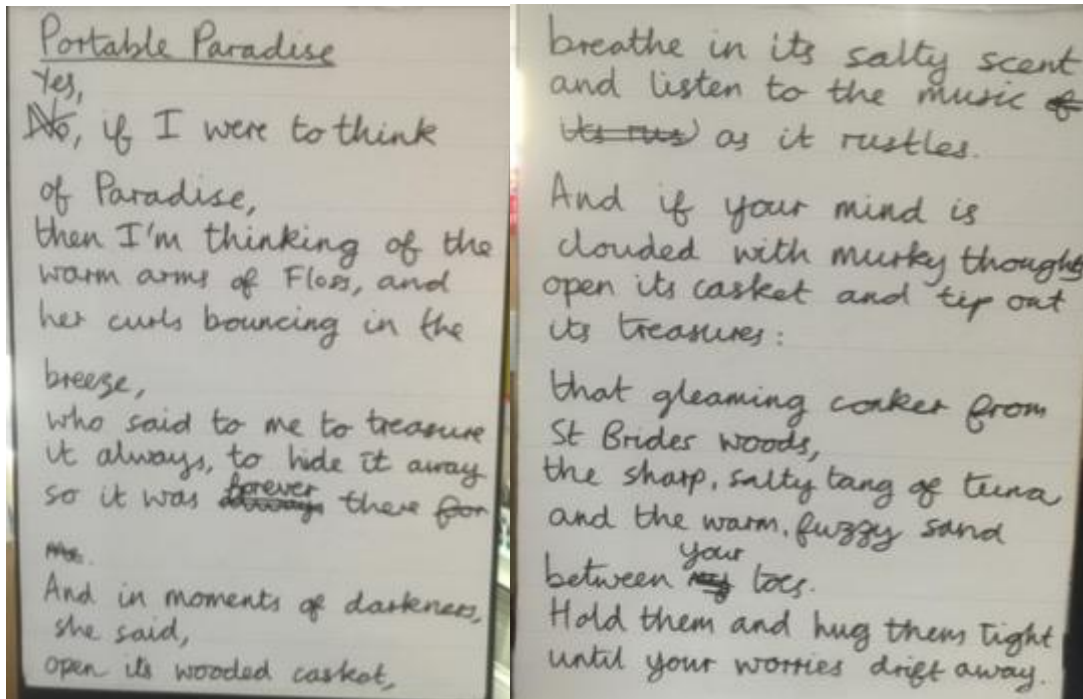 Portable Paradise
Yes,
No, if I were to think
of Paradise,
then I'm thinking of the
warm arms of Floss, and
her curls bouncing in the
breeze,
who said to me to treasure
it always, to hide it away
forever
so it was always there for
me.
And in moments of darkness,
she said,
open its wooded casket,
breathe in its salty scent
and listen to the music of
its rus as it rustles.
And if your mind is
clouded with murky thoughts
open its casket and tip out
its treasures:
that gleaming conker from
St Brides woods,
the sharp, salty tang of tuna
and the warm, fuzzy sand
your
between my toes.
Hold them and hug them tight
until your worries drift away.